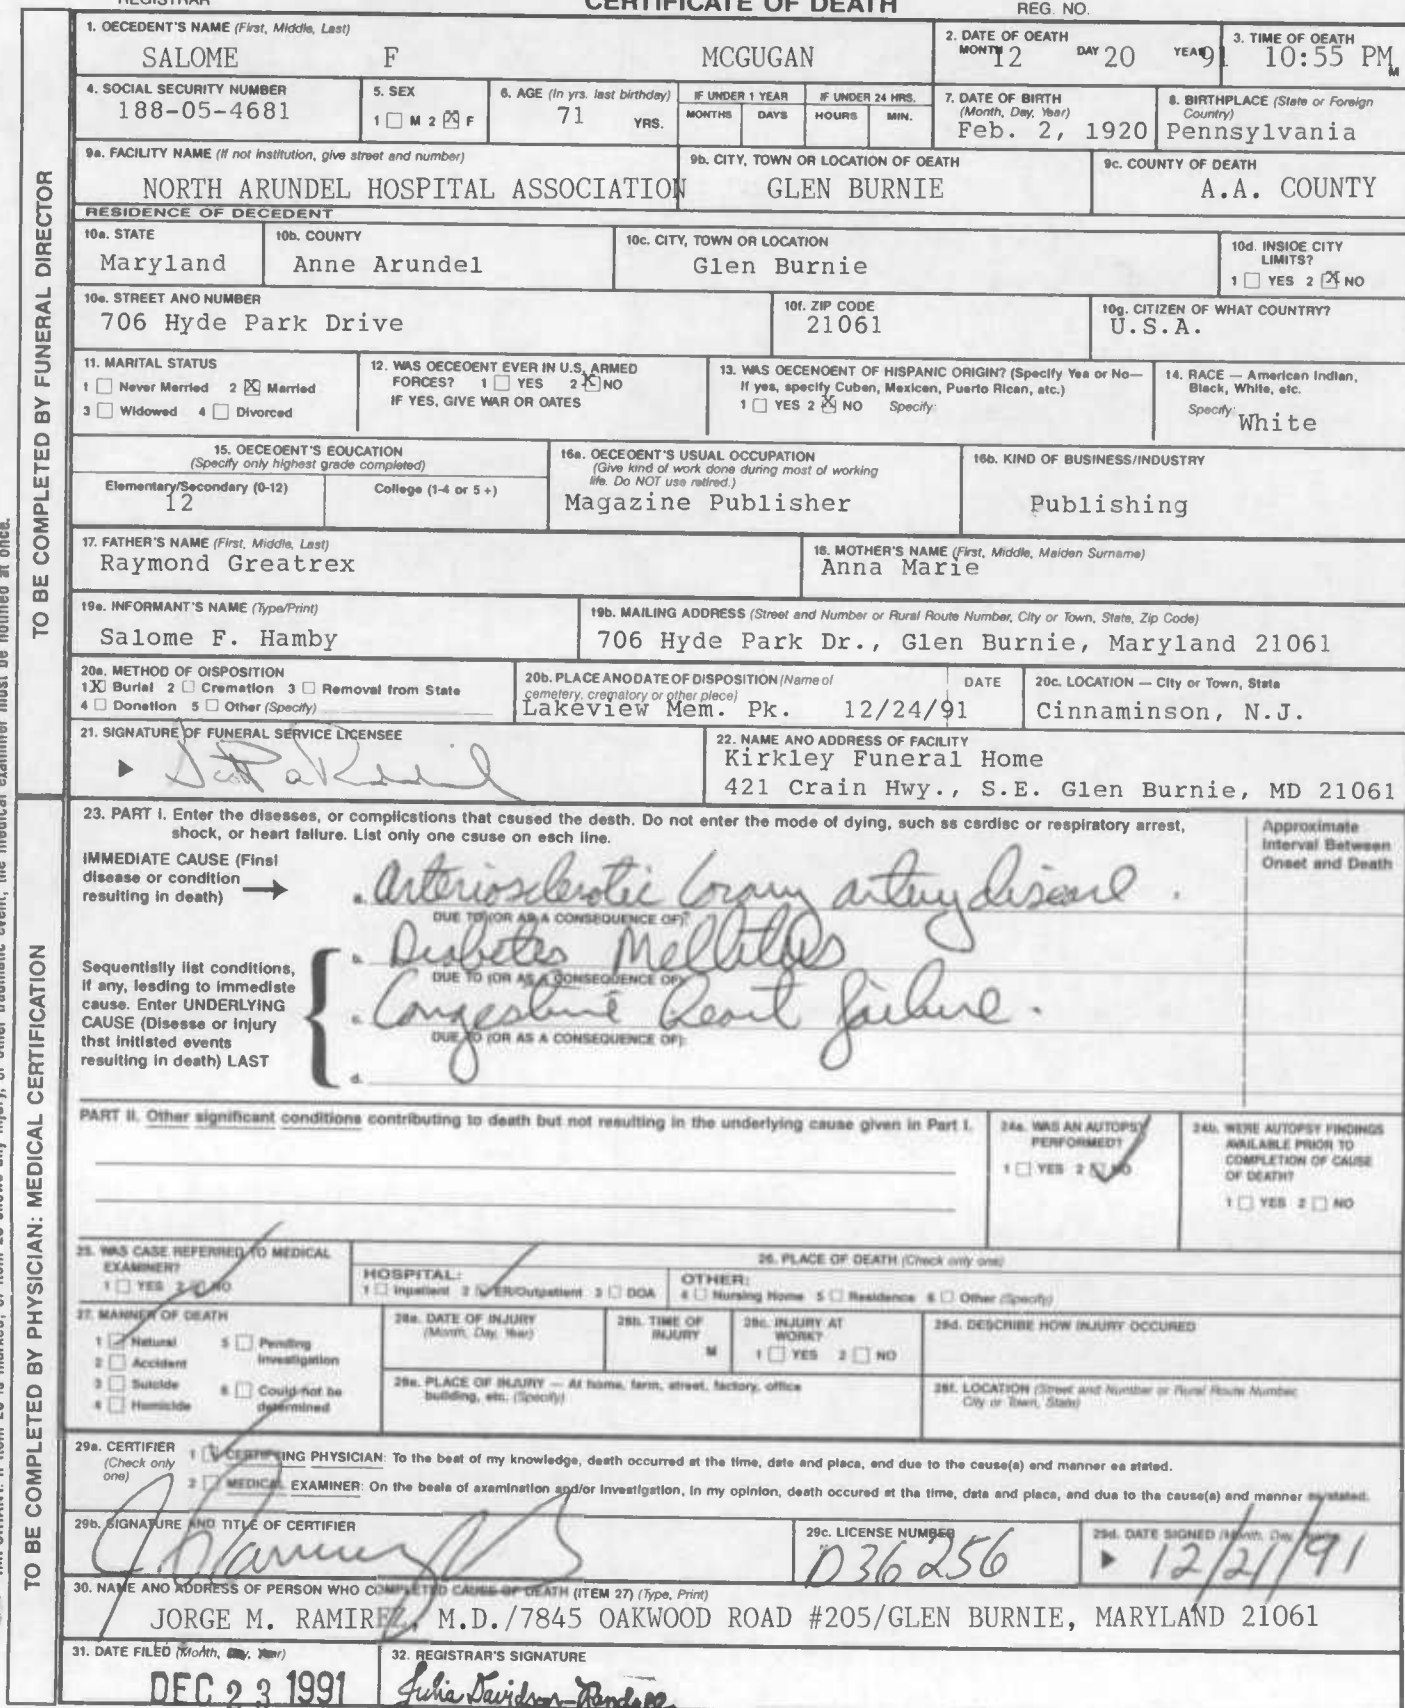 REGISTRAR
CERTIFICATE OF DEATH
REG. NO.
1. OECEDENT'S NAME (First, Middle, Last)
SALOME F MCGUGAN
2. DATE OF OEATH
MONTH 12 DAY 20 YEAR 91
3. TIME OF OEATH
10:55 PM M
4. SOCIAL SECURITY NUMBER
188-05-4681
5. SEX
1 ☐ M 2 ☒ F
6. AGE (In yrs. last birthday)
71 YRS.
IF UNDER 1 YEAR
MONTHS DAYS
IF UNDER 24 HRS.
HOURS MIN.
7. DATE OF BIRTH
(Month, Day, Year)
Feb. 2, 1920
8. BIRTHPLACE (State or Foreign
Country)
Pennsylvania
9a. FACILITY NAME (If not institution, give street and number)
NORTH ARUNDEL HOSPITAL ASSOCIATION
9b. CITY, TOWN OR LOCATION OF OEATH
GLEN BURNIE
9c. COUNTY OF DEATH
A.A. COUNTY
RESIDENCE OF DECEDENT
10a. STATE
Maryland
10b. COUNTY
Anne Arundel
10c. CITY, TOWN OR LOCATION
Glen Burnie
10d. INSIOE CITY
LIMITS?
1 ☐ YES 2 ☒ NO
10e. STREET ANO NUMBER
706 Hyde Park Drive
10f. ZIP CODE
21061
10g. CITIZEN OF WHAT COUNTRY?
U.S.A.
11. MARITAL STATUS
1 ☐ Never Married 2 ☒ Married
3 ☐ Widowed 4 ☐ Divorced
12. WAS OECEOENT EVER IN U.S. ARMED
FORCES? 1 ☐ YES 2 ☒ NO
IF YES, GIVE WAR OR OATES
13. WAS OECENOENT OF HISPANIC ORIGIN? (Specify Yes or No—
If yes, specify Cuban, Mexican, Puerto Rican, etc.)
1 ☐ YES 2 ☒ NO Specify:
14. RACE — American Indian,
Black, White, etc.
Specify: White
15. OECEOENT'S EOUCATION
(Specify only highest grade completed)
Elementary/Secondary (0-12)
12
College (1-4 or 5 +)
16a. OECEOENT'S USUAL OCCUPATION
(Give kind of work done during most of working
life. Do NOT use retired.)
Magazine Publisher
16b. KIND OF BUSINESS/INDUSTRY
Publishing
17. FATHER'S NAME (First, Middle, Last)
Raymond Greatrex
18. MOTHER'S NAME (First, Middle, Maiden Surname)
Anna Marie
19a. INFORMANT'S NAME (Type/Print)
Salome F. Hamby
19b. MAILING ADDRESS (Street and Number or Rural Route Number, City or Town, State, Zip Code)
706 Hyde Park Dr., Glen Burnie, Maryland 21061
20a. METHOD OF OISPOSITION
1 ☒ Burial 2 ☐ Cremation 3 ☐ Removal from State
4 ☐ Donation 5 ☐ Other (Specify)
20b. PLACE ANO DATE OF DISPOSITION (Name of
cemetery, crematory or other place)
DATE
Lakeview Mem. Pk. 12/24/91
20c. LOCATION — City or Town, State
Cinnaminson, N.J.
21. SIGNATURE OF FUNERAL SERVICE LICENSEE
22. NAME ANO ADDRESS OF FACILITY
Kirkley Funeral Home
421 Crain Hwy., S.E. Glen Burnie, MD 21061
TO BE COMPLETED BY FUNERAL DIRECTOR
23. PART I. Enter the diseases, or complications that caused the death. Do not enter the mode of dying, such as cardiac or respiratory arrest,
shock, or heart failure. List only one cause on each line.
Approximate
Interval Between
Onset and Death
IMMEDIATE CAUSE (Final
disease or condition
resulting in death)
a. Arteriosclerotic Corony artery disease.
DUE TO (OR AS A CONSEQUENCE OF):
Diabetes Mellitus
DUE TO (OR AS A CONSEQUENCE OF):
Congestive heart failure.
DUE TO (OR AS A CONSEQUENCE OF):
d.
Sequentially list conditions,
if any, leading to immediate
cause. Enter UNDERLYING
CAUSE (Disease or injury
that initiated events
resulting in death) LAST
PART II. Other significant conditions contributing to death but not resulting in the underlying cause given in Part I.
24a. WAS AN AUTOPSY
PERFORMED?
1 ☐ YES 2 ☑ NO
24b. WERE AUTOPSY FINDINGS
AVAILABLE PRIOR TO
COMPLETION OF CAUSE
OF DEATH?
1 ☐ YES 2 ☐ NO
25. WAS CASE REFERRED TO MEDICAL
EXAMINER?
1 ☐ YES 2 ☑ NO
26. PLACE OF DEATH (Check only one)
HOSPITAL:
1 ☐ Inpatient 2 ☑ ER/Outpatient 3 ☐ DOA
OTHER:
4 ☐ Nursing Home 5 ☐ Residence 6 ☐ Other (Specify)
27. MANNER OF DEATH
1 ☑ Natural 5 ☐ Pending
2 ☐ Accident Investigation
3 ☐ Suicide 6 ☐ Could not be
4 ☐ Homicide determined
28a. DATE OF INJURY
(Month, Day, Year)
28b. TIME OF
INJURY
M
28c. INJURY AT
WORK?
1 ☐ YES 2 ☐ NO
28d. DESCRIBE HOW INJURY OCCURED
28e. PLACE OF INJURY — At home, farm, street, factory, office
building, etc. (Specify)
28f. LOCATION (Street and Number or Rural Route Number,
City or Town, State)
29a. CERTIFIER
(Check only
one)
1 ☑ CERTIFYING PHYSICIAN: To the best of my knowledge, death occurred at the time, date and place, and due to the cause(s) and manner as stated.
2 ☐ MEDICAL EXAMINER: On the basis of examination and/or investigation, in my opinion, death occured at the time, date and place, and due to the cause(s) and manner as stated.
29b. SIGNATURE AND TITLE OF CERTIFIER
29c. LICENSE NUMBER
D36256
29d. DATE SIGNED (Month, Day, Year)
12/21/91
30. NAME ANO ADDRESS OF PERSON WHO COMPLETED CAUSE OF DEATH (ITEM 27) (Type, Print)
JORGE M. RAMIREZ, M.D./7845 OAKWOOD ROAD #205/GLEN BURNIE, MARYLAND 21061
31. DATE FILED (Month, Day, Year)
DEC 23 1991
32. REGISTRAR'S SIGNATURE
Julia Davidson-Randall
TO BE COMPLETED BY PHYSICIAN: MEDICAL CERTIFICATION